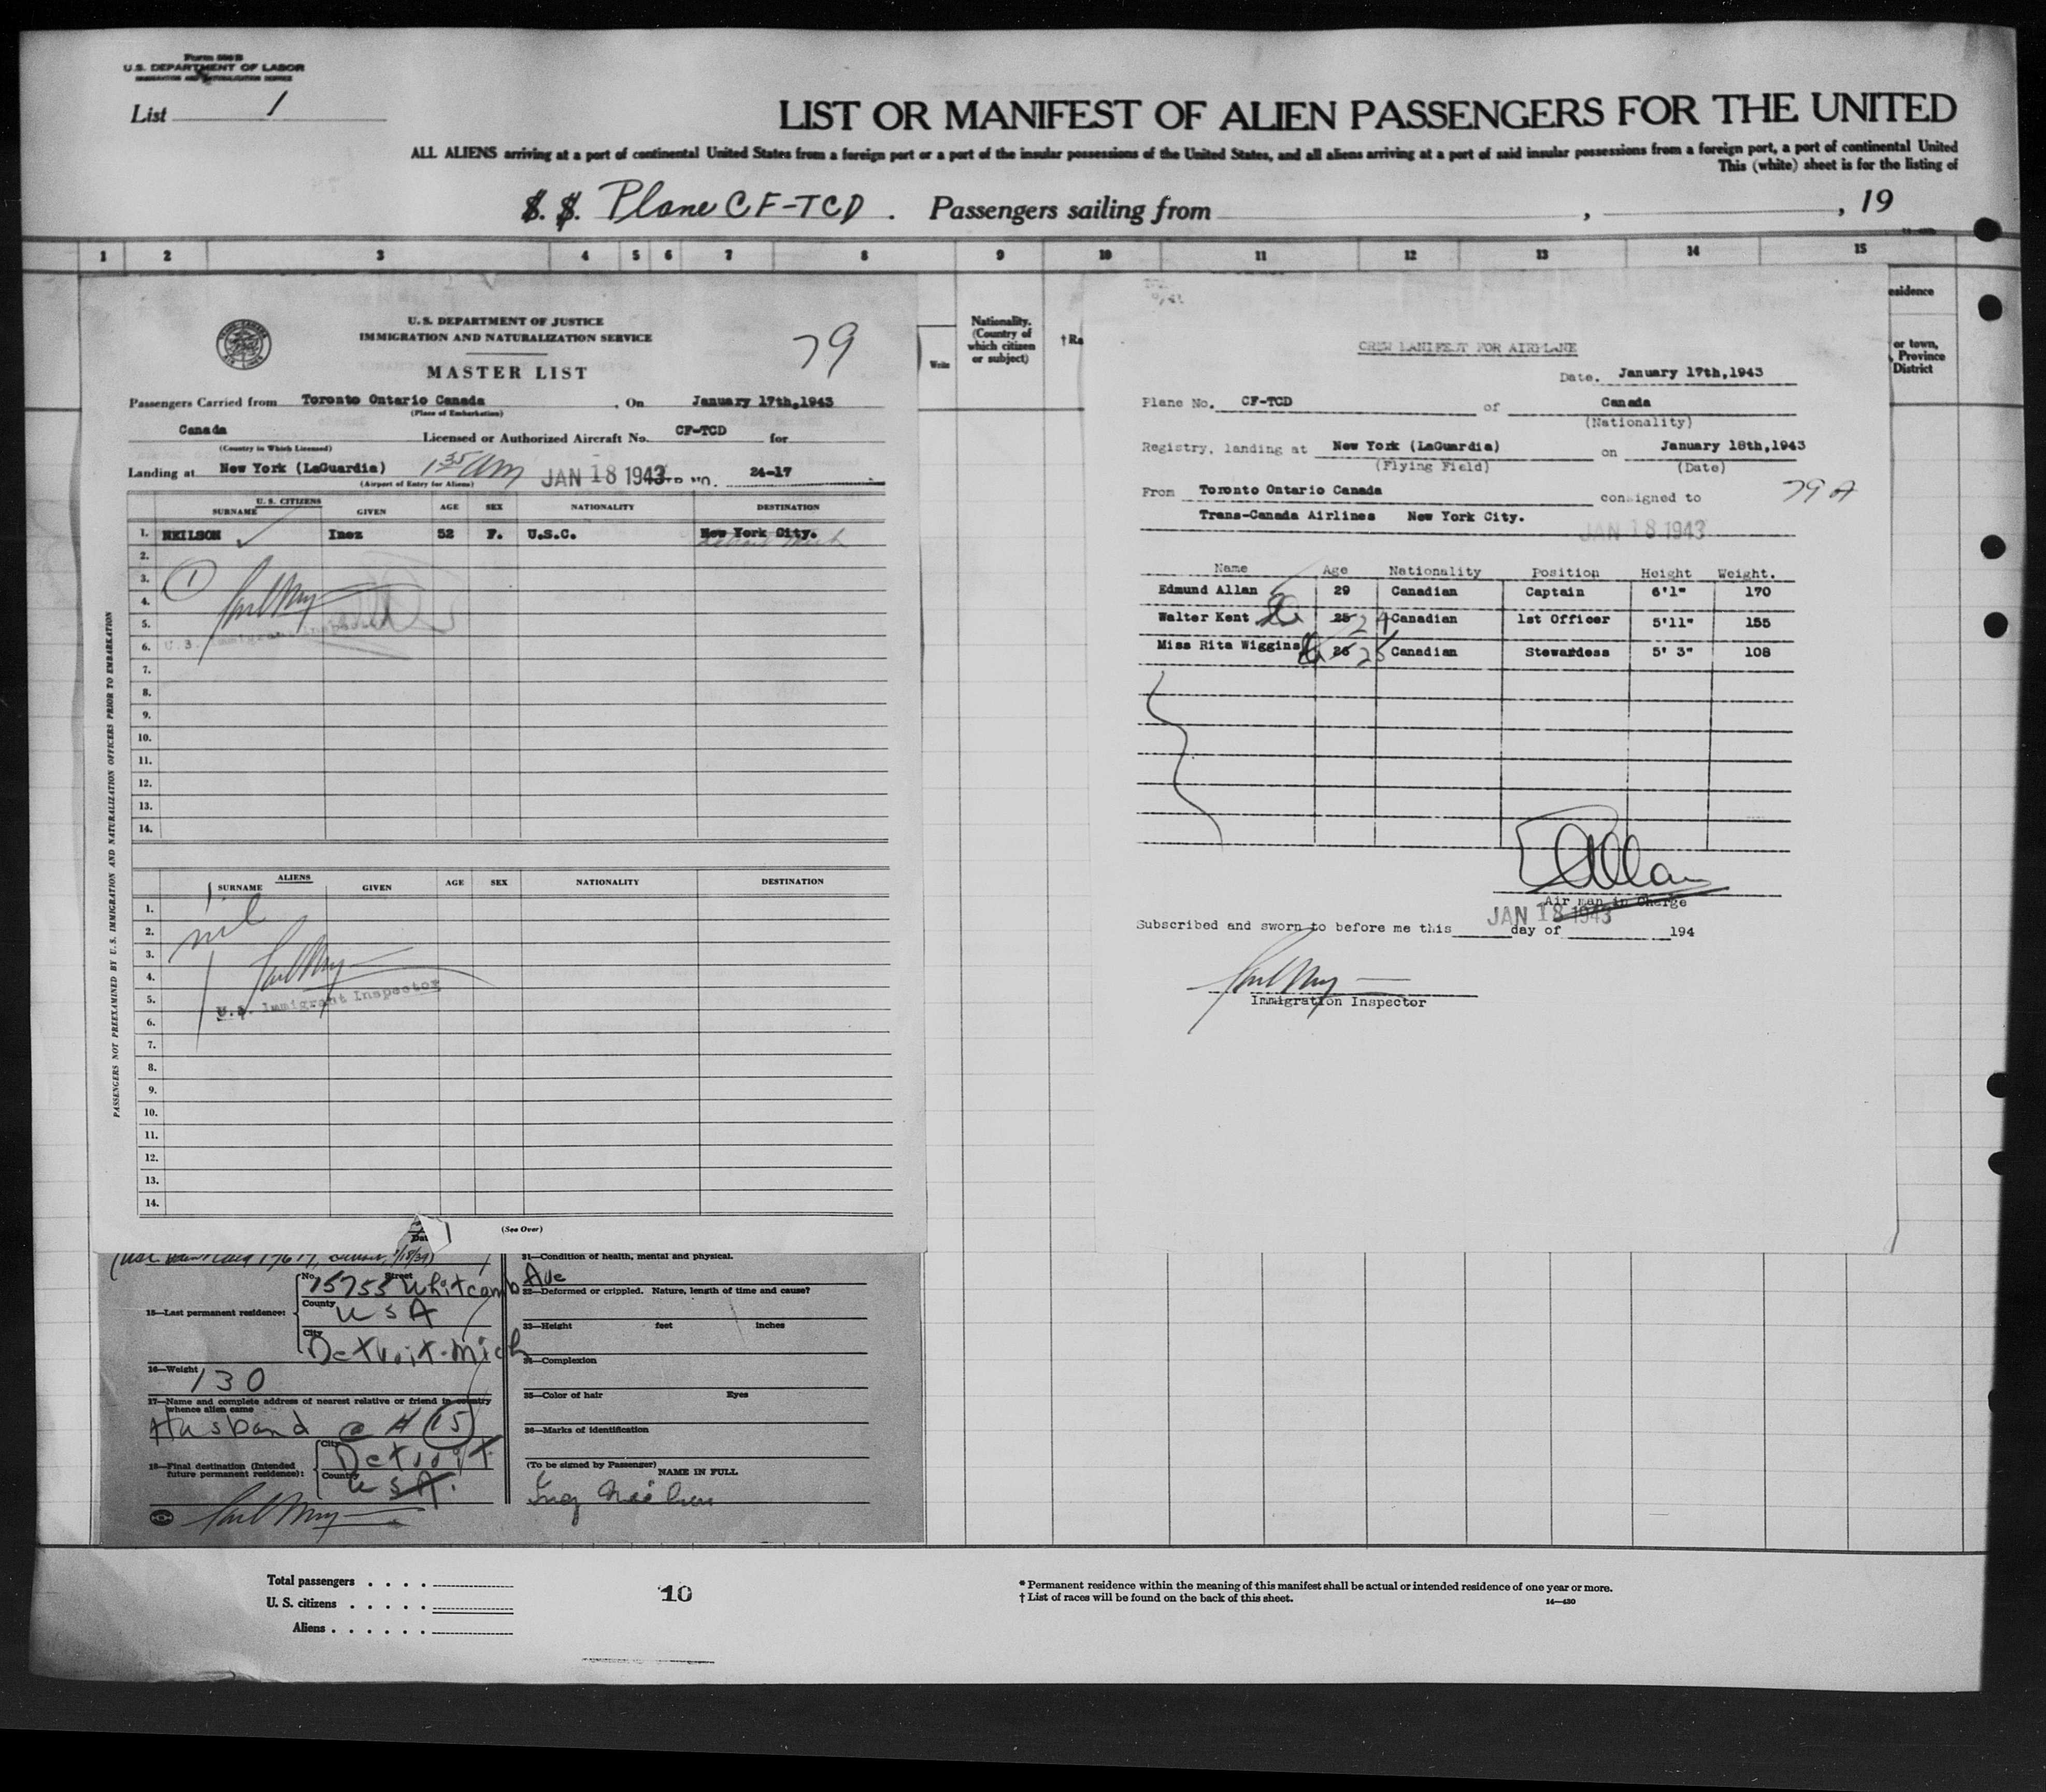 Form 500 B
U.S. DEPARTMENT OF LABOR
IMMIGRATION AND NATURALIZATION SERVICE
List 1
LIST OR MANIFEST OF ALIEN PASSENGERS FOR THE UNITED
ALL ALIENS arriving at a port of continental United States from a foreign port or a port of the insular possessions of the United States, and all aliens arriving at a port of said insular possessions from a foreign port, a port of continental United
This (white) sheet is for the listing of
S. S. Plane CF-TCD. Passengers sailing from , , 19
1 2 3 4 5 6 7 8 9 10 11 12 13 14 15
U. S. DEPARTMENT OF JUSTICE
IMMIGRATION AND NATURALIZATION SERVICE
79
MASTER LIST
Passengers Carried from Toronto Ontario Canada , On January 17th,1943
(Place of Embarkation)
Canada Licensed or Authorized Aircraft No. CF-TCD for
(Country in Which Licensed)
Landing at New York (LaGuardia) 1 35 AM JAN 18 1943 TRIP NO. 24-17
(Airport of Entry for Aliens)
U. S. CITIZENS
SURNAME GIVEN AGE SEX NATIONALITY DESTINATION
1. NEILSON Inez 52 F. U.S.C. New York City.
Detroit Mich
2.
3. 1
4.
5.
U.S. Immigrant Inspector
6.
7.
8.
9.
10.
11.
12.
13.
14.
ALIENS
SURNAME GIVEN AGE SEX NATIONALITY DESTINATION
1.
nil
2.
3.
4.
5.
U.S. Immigrant Inspector
6.
7.
8.
9.
10.
11.
12.
13.
14.
(See Over)
PASSENGERS NOT PREEXAMINED BY U. S. IMMIGRATION AND NATURALIZATION OFFICERS PRIOR TO EMBARKATION
Write
Nationality.
(Country of
which citizen
or subject)
† Ra
CREW MANIFEST FOR AIRPLANE
Date. January 17th,1943
Plane No. CF-TCD of Canada
(Nationality)
Registry, landing at New York (LaGuardia) on January 18th,1943
(Flying Field) (Date)
From Toronto Ontario Canada consigned to 79 A
Trans-Canada Airlines New York City.
JAN 18 1943
Name Age Nationality Position Height Weight.
Edmund Allan 29 Canadian Captain 6'1" 170
Walter Kent 25 24 Canadian 1st Officer 5'11" 155
Miss Rita Wiggins 26 25 Canadian Stewardess 5' 3" 108
EAllan
Air man in Charge
JAN 18 1943
Subscribed and sworn to before me this day of 194
Immigration Inspector
esidence
or town,
, Province
District
15—Last permanent residence:
No. Street
15755 Whitcomb
County
USA
City
Detroit-Mich
16—Weight
130
17—Name and complete address of nearest relative or friend in country
whence alien came
Husband @ # 15
18—Final destination (Intended
future permanent residence):
City
Detroit
Country
USA.
31—Condition of health, mental and physical.
32—Deformed or crippled. Nature, length of time and cause?
Ave
33—Height feet inches
34—Complexion
35—Color of hair Eyes
36—Marks of identification
(To be signed by Passenger)
NAME IN FULL
Inez Neilson
Total passengers . . . .
U. S. citizens . . . . .
Aliens . . . . . .
10
* Permanent residence within the meaning of this manifest shall be actual or intended residence of one year or more.
† List of races will be found on the back of this sheet.
14—430